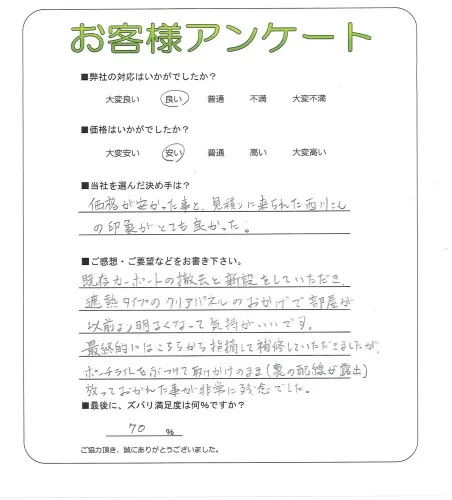 お客様アンケート
■弊社の対応はいかがでしたか？
大変良い 良い 普通 不満 大変不満
■価格はいかがでしたか？
大変安い 安い 普通 高い 大変高い
■当社を選んだ決め手は？
価格が安かった事と、見積りに来られた西川さん
の印象がとても良かった。
■ご感想・ご要望などをお書き下さい。
既存カーポートの撤去と新設をしていただき、
遮熱タイプのクリアパネルのおかげで部屋が
以前より明るくなって気持がいいです。
最終的にはこちらから指摘して補修していただきましたが、
ポーチライトをぶつけて取れかけのまま(裏の配線が露出)
放っておかれた事が非常に残念でした。
■最後に、ズバリ満足度は何%ですか？
70 %
ご協力頂き、誠にありがとうございました。